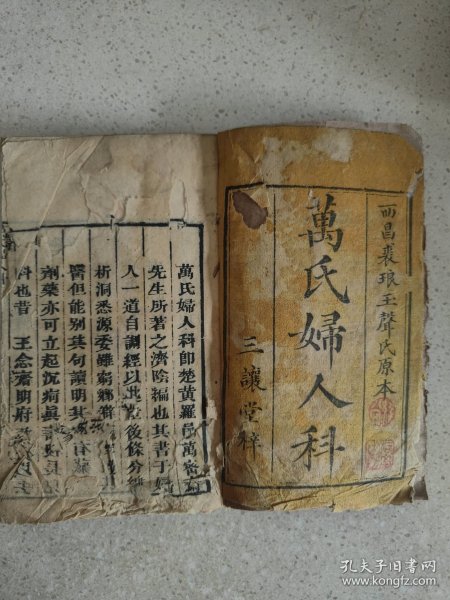 西昌裘琅玉聲氏原本
萬氏婦人科
三讓堂梓
萬氏婦人科即楚黃羅邑萬密
先生所著之濟陰編也其書于婦
人一道自調經以其後條分
析洞悉源委雖窮鄉
醫但能别其句讀明其
劑藥亦可立起沉疴眞
科也昔 王念 明府
孔夫子旧书网
www.kongfz.com